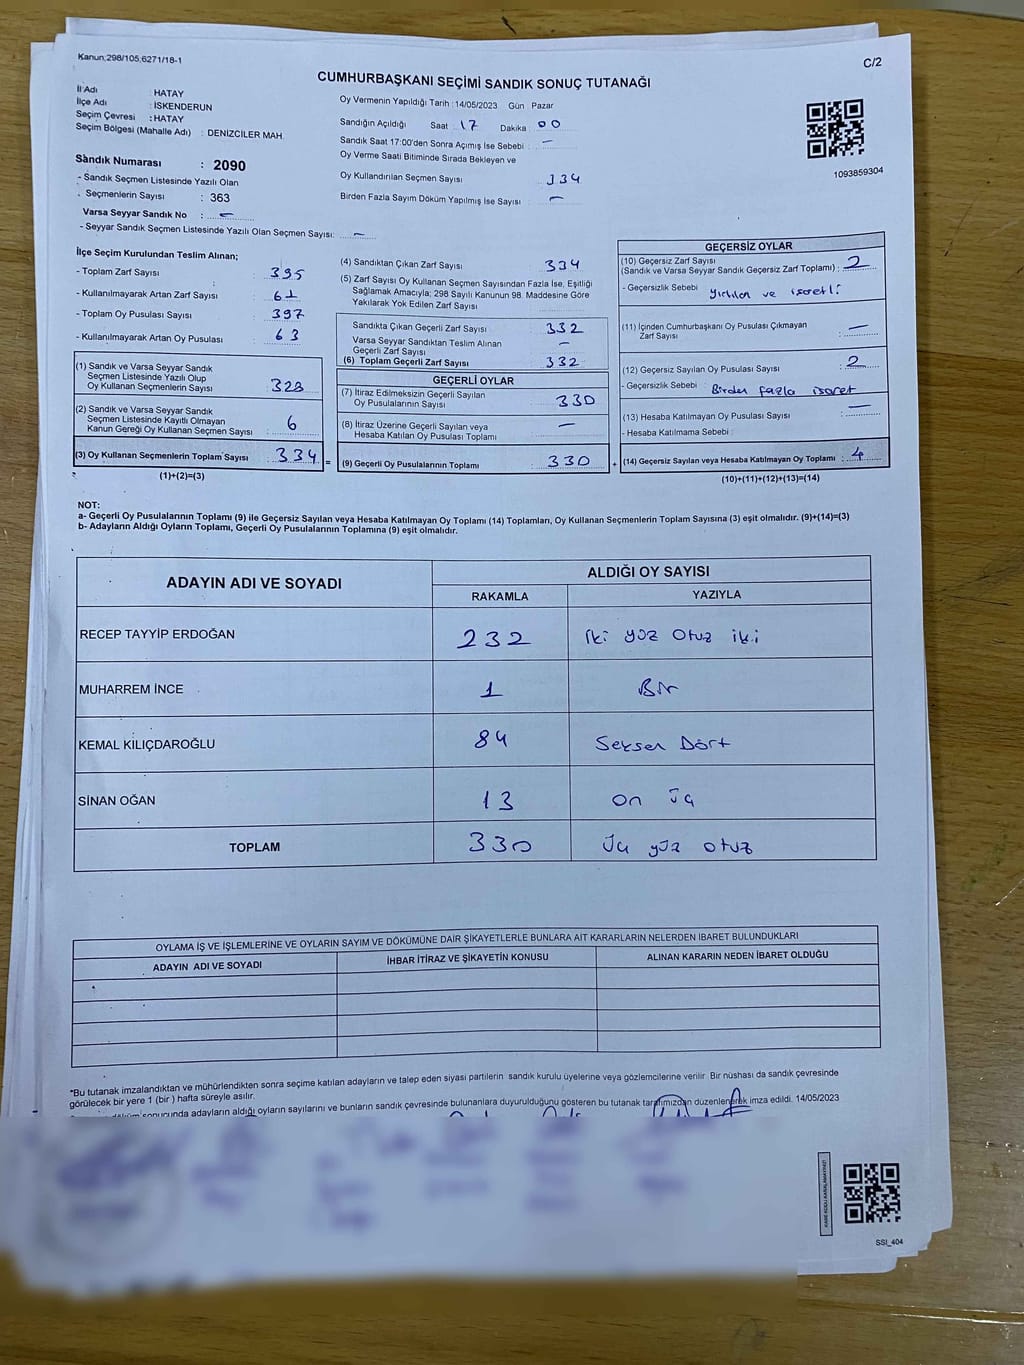 Kanun;298/105,6271/18-1
C/2
CUMHURBAŞKANI SEÇİMİ SANDIK SONUÇ TUTANAĞI
İl Adı : HATAY
İlçe Adı : İSKENDERUN
Seçim Çevresi : HATAY
Seçim Bölgesi (Mahalle Adı) : DENİZCİLER MAH.
Sandık Numarası : 2090
- Sandık Seçmen Listesinde Yazılı Olan
Seçmenlerin Sayısı : 363
Varsa Seyyar Sandık No : –
- Seyyar Sandık Seçmen Listesinde Yazılı Olan Seçmen Sayısı: –
Oy Vermenin Yapıldığı Tarih : 14/05/2023 Gün Pazar
Sandığın Açıldığı Saat 17 Dakika 00
Sandık Saat 17:00'den Sonra Açımış İse Sebebi : –
Oy Verme Saati Bitiminde Sırada Bekleyen ve
Oy Kullandırılan Seçmen Sayısı 334
Birden Fazla Sayım Döküm Yapılmış İse Sayısı –
1093859304
İlçe Seçim Kurulundan Teslim Alınan;
- Toplam Zarf Sayısı : 395
- Kullanılmayarak Artan Zarf Sayısı : 61
- Toplam Oy Pusulası Sayısı : 397
- Kullanılmayarak Artan Oy Pusulası : 63
(1) Sandık ve Varsa Seyyar Sandık
Seçmen Listesinde Yazılı Olup
Oy Kullanan Seçmenlerin Sayısı : 328
(2) Sandık ve Varsa Seyyar Sandık
Seçmen Listesinde Kayıtlı Olmayan
Kanun Gereği Oy Kullanan Seçmen Sayısı : 6
(3) Oy Kullanan Seçmenlerin Toplam Sayısı : 334 =
(1)+(2)=(3)
(4) Sandıktan Çıkan Zarf Sayısı : 334
(5) Zarf Sayısı Oy Kullanan Seçmen Sayısından Fazla İse, Eşitliği
Sağlamak Amacıyla; 298 Sayılı Kanunun 98. Maddesine Göre
Yakılarak Yok Edilen Zarf Sayısı :
Sandıkta Çıkan Geçerli Zarf Sayısı : 332
Varsa Seyyar Sandıktan Teslim Alınan
Geçerli Zarf Sayısı : –
(6) Toplam Geçerli Zarf Sayısı : 332
GEÇERLİ OYLAR
(7) İtiraz Edilmeksizin Geçerli Sayılan
Oy Pusulalarının Sayısı : 330
(8) İtiraz Üzerine Geçerli Sayılan veya
Hesaba Katılan Oy Pusulası Toplamı : –
(9) Geçerli Oy Pusulalarının Toplamı : 330 +
GEÇERSİZ OYLAR
(10) Geçersiz Zarf Sayısı
(Sandık ve Varsa Seyyar Sandık Geçersiz Zarf Toplamı) : 2
- Geçersizlik Sebebi : yırtılan ve isaretli
(11) İçinden Cumhurbaşkanı Oy Pusulası Çıkmayan
Zarf Sayısı : –
(12) Geçersiz Sayılan Oy Pusulası Sayısı : 2
- Geçersizlik Sebebi : Birden fazla isaret
(13) Hesaba Katılmayan Oy Pusulası Sayısı : –
- Hesaba Katılmama Sebebi :
(14) Geçersiz Sayılan veya Hesaba Katılmayan Oy Toplamı : 4
(10)+(11)+(12)+(13)=(14)
NOT:
a- Geçerli Oy Pusulalarının Toplamı (9) ile Geçersiz Sayılan veya Hesaba Katılmayan Oy Toplamı (14) Toplamları, Oy Kullanan Seçmenlerin Toplam Sayısına (3) eşit olmalıdır. (9)+(14)=(3)
b- Adayların Aldığı Oyların Toplamı, Geçerli Oy Pusulalarının Toplamına (9) eşit olmalıdır.
ADAYIN ADI VE SOYADI ALDIĞI OY SAYISI
RAKAMLA YAZIYLA
RECEP TAYYİP ERDOĞAN 232 İki yüz Otuz iki
MUHARREM İNCE 1 Bir
KEMAL KILIÇDAROĞLU 84 Seksen Dört
SİNAN OĞAN 13 On üç
TOPLAM 330 Üç yüz otuz
OYLAMA İŞ VE İŞLEMLERİNE VE OYLARIN SAYIM VE DÖKÜMÜNE DAİR ŞİKAYETLERLE BUNLARA AİT KARARLARIN NELERDEN İBARET BULUNDUKLARI
ADAYIN ADI VE SOYADI İHBAR İTİRAZ VE ŞİKAYETİN KONUSU ALINAN KARARIN NEDEN İBARET OLDUĞU
*Bu tutanak imzalandıktan ve mühürlendikten sonra seçime katılan adayların ve talep eden siyasi partilerin sandık kurulu üyelerine veya gözlemcilerine verilir. Bir nüshası da sandık çevresinde
görülecek bir yere 1 (bir) hafta süreyle asılır.
sonucunda adayların aldığı oyların sayılarını ve bunların sandık çevresinde bulunanlara duyurulduğunu gösteren bu tutanak tarafımızdan düzenlenerek imza edildi. 14/05/2023
SSI_404